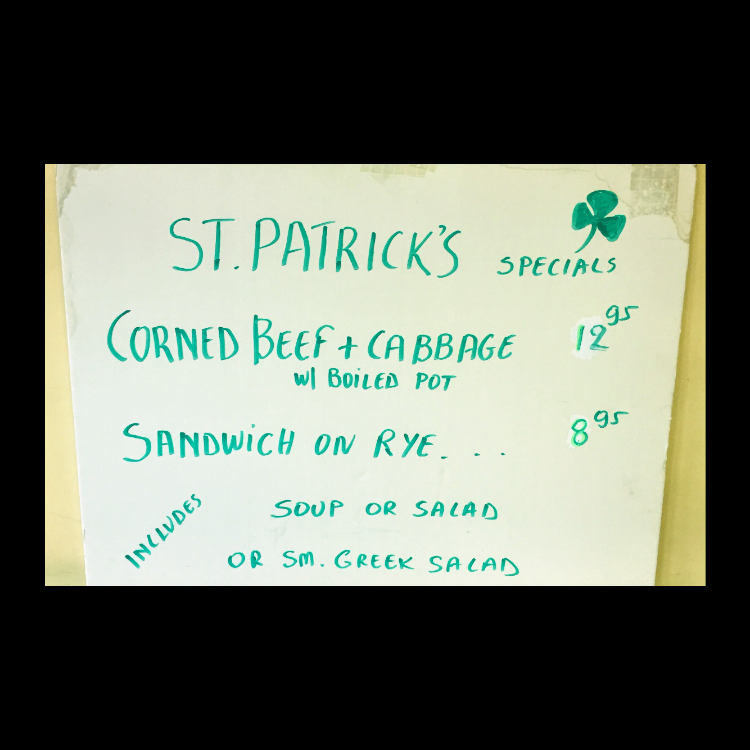 ST. PATRICK'S SPECIALS
CORNED BEEF + CABBAGE 12 95
W/ BOILED POT
SANDWICH ON RYE. . . 8 95
INCLUDES SOUP OR SALAD
OR SM. GREEK SALAD